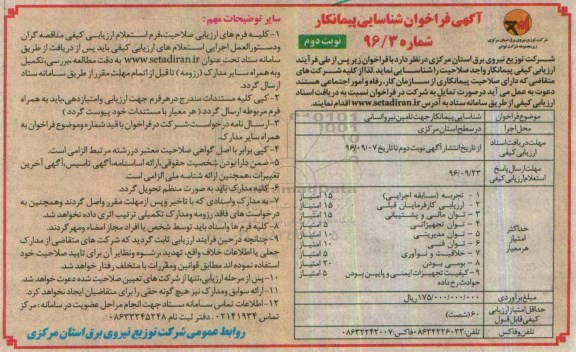 آگهی فراخوان شناسایی پیمانکار
شماره ۹۶/۳
نوبت دوم
شرکت توزیع نیروی برق استان مرکزی
شرکت توزیع نیروی برق استان مرکزی در نظر دارد با فراخوان زیر پس از طی فرآیند
ارزیابی کیفی پیمانکار واجد صلاحیت را شناسایی نماید. لذا از کلیه شرکت های
متقاضی که دارای صلاحیت پیمانکاری از سازمان کار، رفاه و امور اجتماعی هستند
دعوت به عمل می آید در صورت تمایل به شرکت در فراخوان نسبت به دریافت اسناد
ارزیابی کیفی از طریق سامانه ستاد به آدرس www.setadiran.ir اقدام نمایند.
موضوع فراخوان
شناسایی پیمانکار جهت تامین نیروی انسانی
محل اجرا
در سطح استان مرکزی
مهلت دریافت اسناد ارزیابی کیفی
از تاریخ انتشار آگهی نوبت دوم تا تاریخ ۹۶/۰۹/۰۷
مهلت ارسال پاسخ استعلام ارزیابی کیفی
۹۶/۰۹/۲۳
حداکثر امتیاز هر معیار
۱- تجربه (سابقه اجرایی) ۱۵ امتیاز
۲- ارزیابی کارفرمایان قبلی ۱۵ امتیاز
۳- توان مالی و پشتیبانی ۱۵ امتیاز
۴- توان تجهیزاتی ۵ امتیاز
۵- توان مدیریتی ۱۰ امتیاز
۶- توان فنی ۱۰ امتیاز
۷- خلاقیت و نوآوری ۵ امتیاز
۸- بومی بودن ۲۰ امتیاز
۹- کیفیت تجهیزات ایمنی و پایین بودن ۵ امتیاز
حوادث رخ داده
مبلغ برآوردی
۱۷۵/۰۰۰/۰۰۰/۰۰۰ ریال
حداقل امتیاز ارزیابی کیفی قابل قبول
۶۰ (شصت)
تلفن: ۰۸۶۳۲۲۲۶۰۳۳
فاکس: ۰۸۶۳۲۲۴۲۰۰۷
سایر توضیحات مهم:
۱- کلیه فرم های ارزیابی صلاحیت، فرم استعلام ارزیابی کیفی مناقصه گران
و دستورالعمل اجرایی استعلام های ارزیابی کیفی باید پس از دریافت از طریق
سامانه ستاد تحت عنوان www.setadiran.ir به دقت مطالعه، بررسی، تکمیل
و به همراه سایر مدارک (رزومه) تا قبل از اتمام مهلت مقرر از طریق سامانه ستاد
ارسال گردد.
۲- کپی کلیه مستندات مندرج در هر فرم جهت ارزیابی و امتیازدهی، باید به همراه
فرم مربوطه ارسال گردد. (هر معیار با مستندات خود پیوست گردد)
۳- ارسال نامه درخواست شرکت در فراخوان با قید شماره و موضوع فراخوان به
همراه سایر مدارک.
۴- کپی برابر با اصل گواهی صلاحیت معتبر در رشته مرتبط الزامی است.
۵- ضمن دارا بودن شخصیت حقوقی، ارائه اساسنامه، آگهی تاسیس، آگهی آخرین
تغییرات، همچنین ارائه شناسه ملی الزامی است.
۶- کلیه مدارک باید به صورت منظم تحویل گردد.
۷- به مدارک واسنادی که با تاخیر و پس از مهلت مقرر واصل گردند و همچنین به
درخواست های فاقد رزومه و مدارک تکمیلی ترتیب اثری داده نخواهد شد.
۸- کلیه فرم ها و اسناد باید توسط شخص یا افراد مجاز امضاء و مهر گردند.
۹- چنانچه در حین فرآیند ارزیابی ثابت گردید که شرکت های متقاضی از مدارک
جعلی یا اطلاعات خلاف واقع، تهدید، رشوه و نظایر آن برای تایید صلاحیت خود
استفاده نموده اند مطابق قوانین و مقررات با متخلف رفتار خواهد شد.
۱۰- پس از مرحله ارزیابی، تنها از شرکت های تعیین صلاحیت شده دعوت خواهد شد.
۱۱- ارائه سوابق و مدارک نیز هیچ گونه حقی را برای متقاضیان ایجاد نخواهد کرد.
۱۲- اطلاعات تماس سامانه ستاد جهت انجام مراحل عضویت در سامانه: مرکز
تماس ۰۲۱۴۱۹۳۴، دفتر ثبت نام ۰۸۶۳۳۲۴۵۲۴۸
روابط عمومی شرکت توزیع نیروی برق استان مرکزی